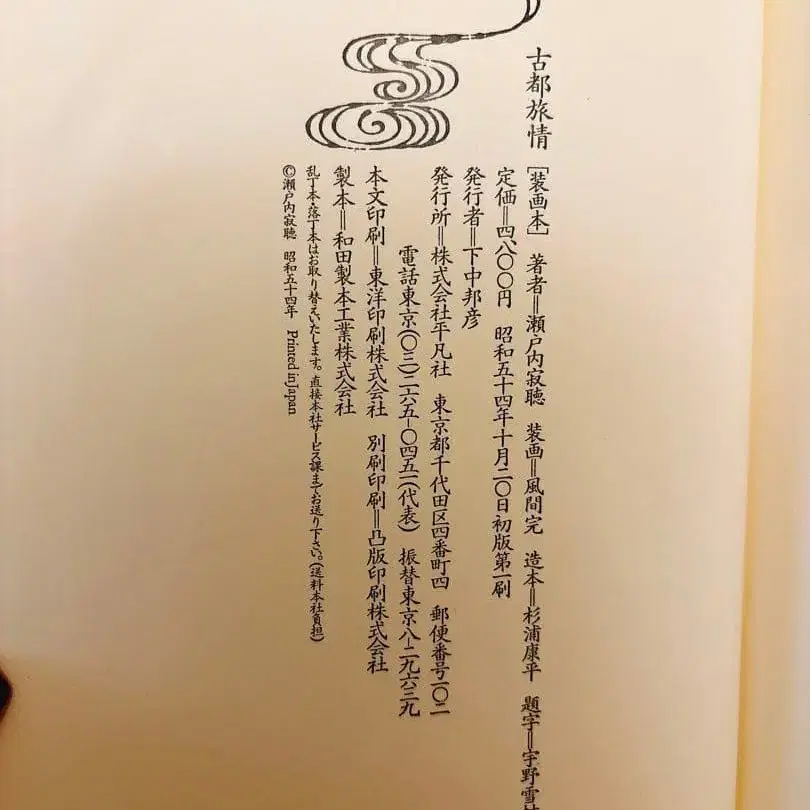 古都旅情
[装画本] 著者=瀬戸内寂聴 装画=風間完 造本=杉浦康平 題字=宇野雪
定価=四、八〇〇円 昭和五十四年十月二〇日初版第一刷
発行者=下中邦彦
発行所=株式会社平凡社 東京都千代田区四番町四 郵便番号一〇二
電話東京(〇三)二六五-〇四五一(代表) 振替東京八-二九六三九
本文印刷=東洋印刷株式会社 別刷印刷=凸版印刷株式会社
製本=和田製本工業株式会社
乱丁本・落丁本はお取り替えいたします。直接本社サービス課までお送り下さい。(送料本社負担)
©瀬戸内寂聴 昭和五十四年 Printed in Japan